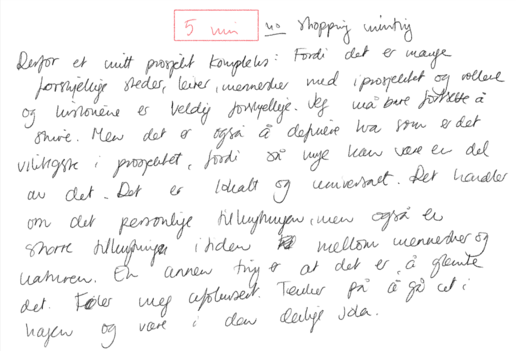 5 min no stopping writing
Derfor er mitt prosjekt kompleks: Fordi det er mange
forskjellige steder, leirer, mennesker med i prosjektet og rollene
og historiene er veldig forskjellige. Jeg må bare fortsette å
skrive. Men det er også å definere hva som er det
viktigste i prosjektet, fordi så mye kan være en del
av det. Det er lokalt og universelt. Det handler
om det personlige tilknytningen, men også en
større tilknytning i tiden mellom mennesker og
naturen. En annen ting er at det er å glemme
det. Føler meg ufokusert. Tenker på å gå ut i
hagen og være i den deilige sola.